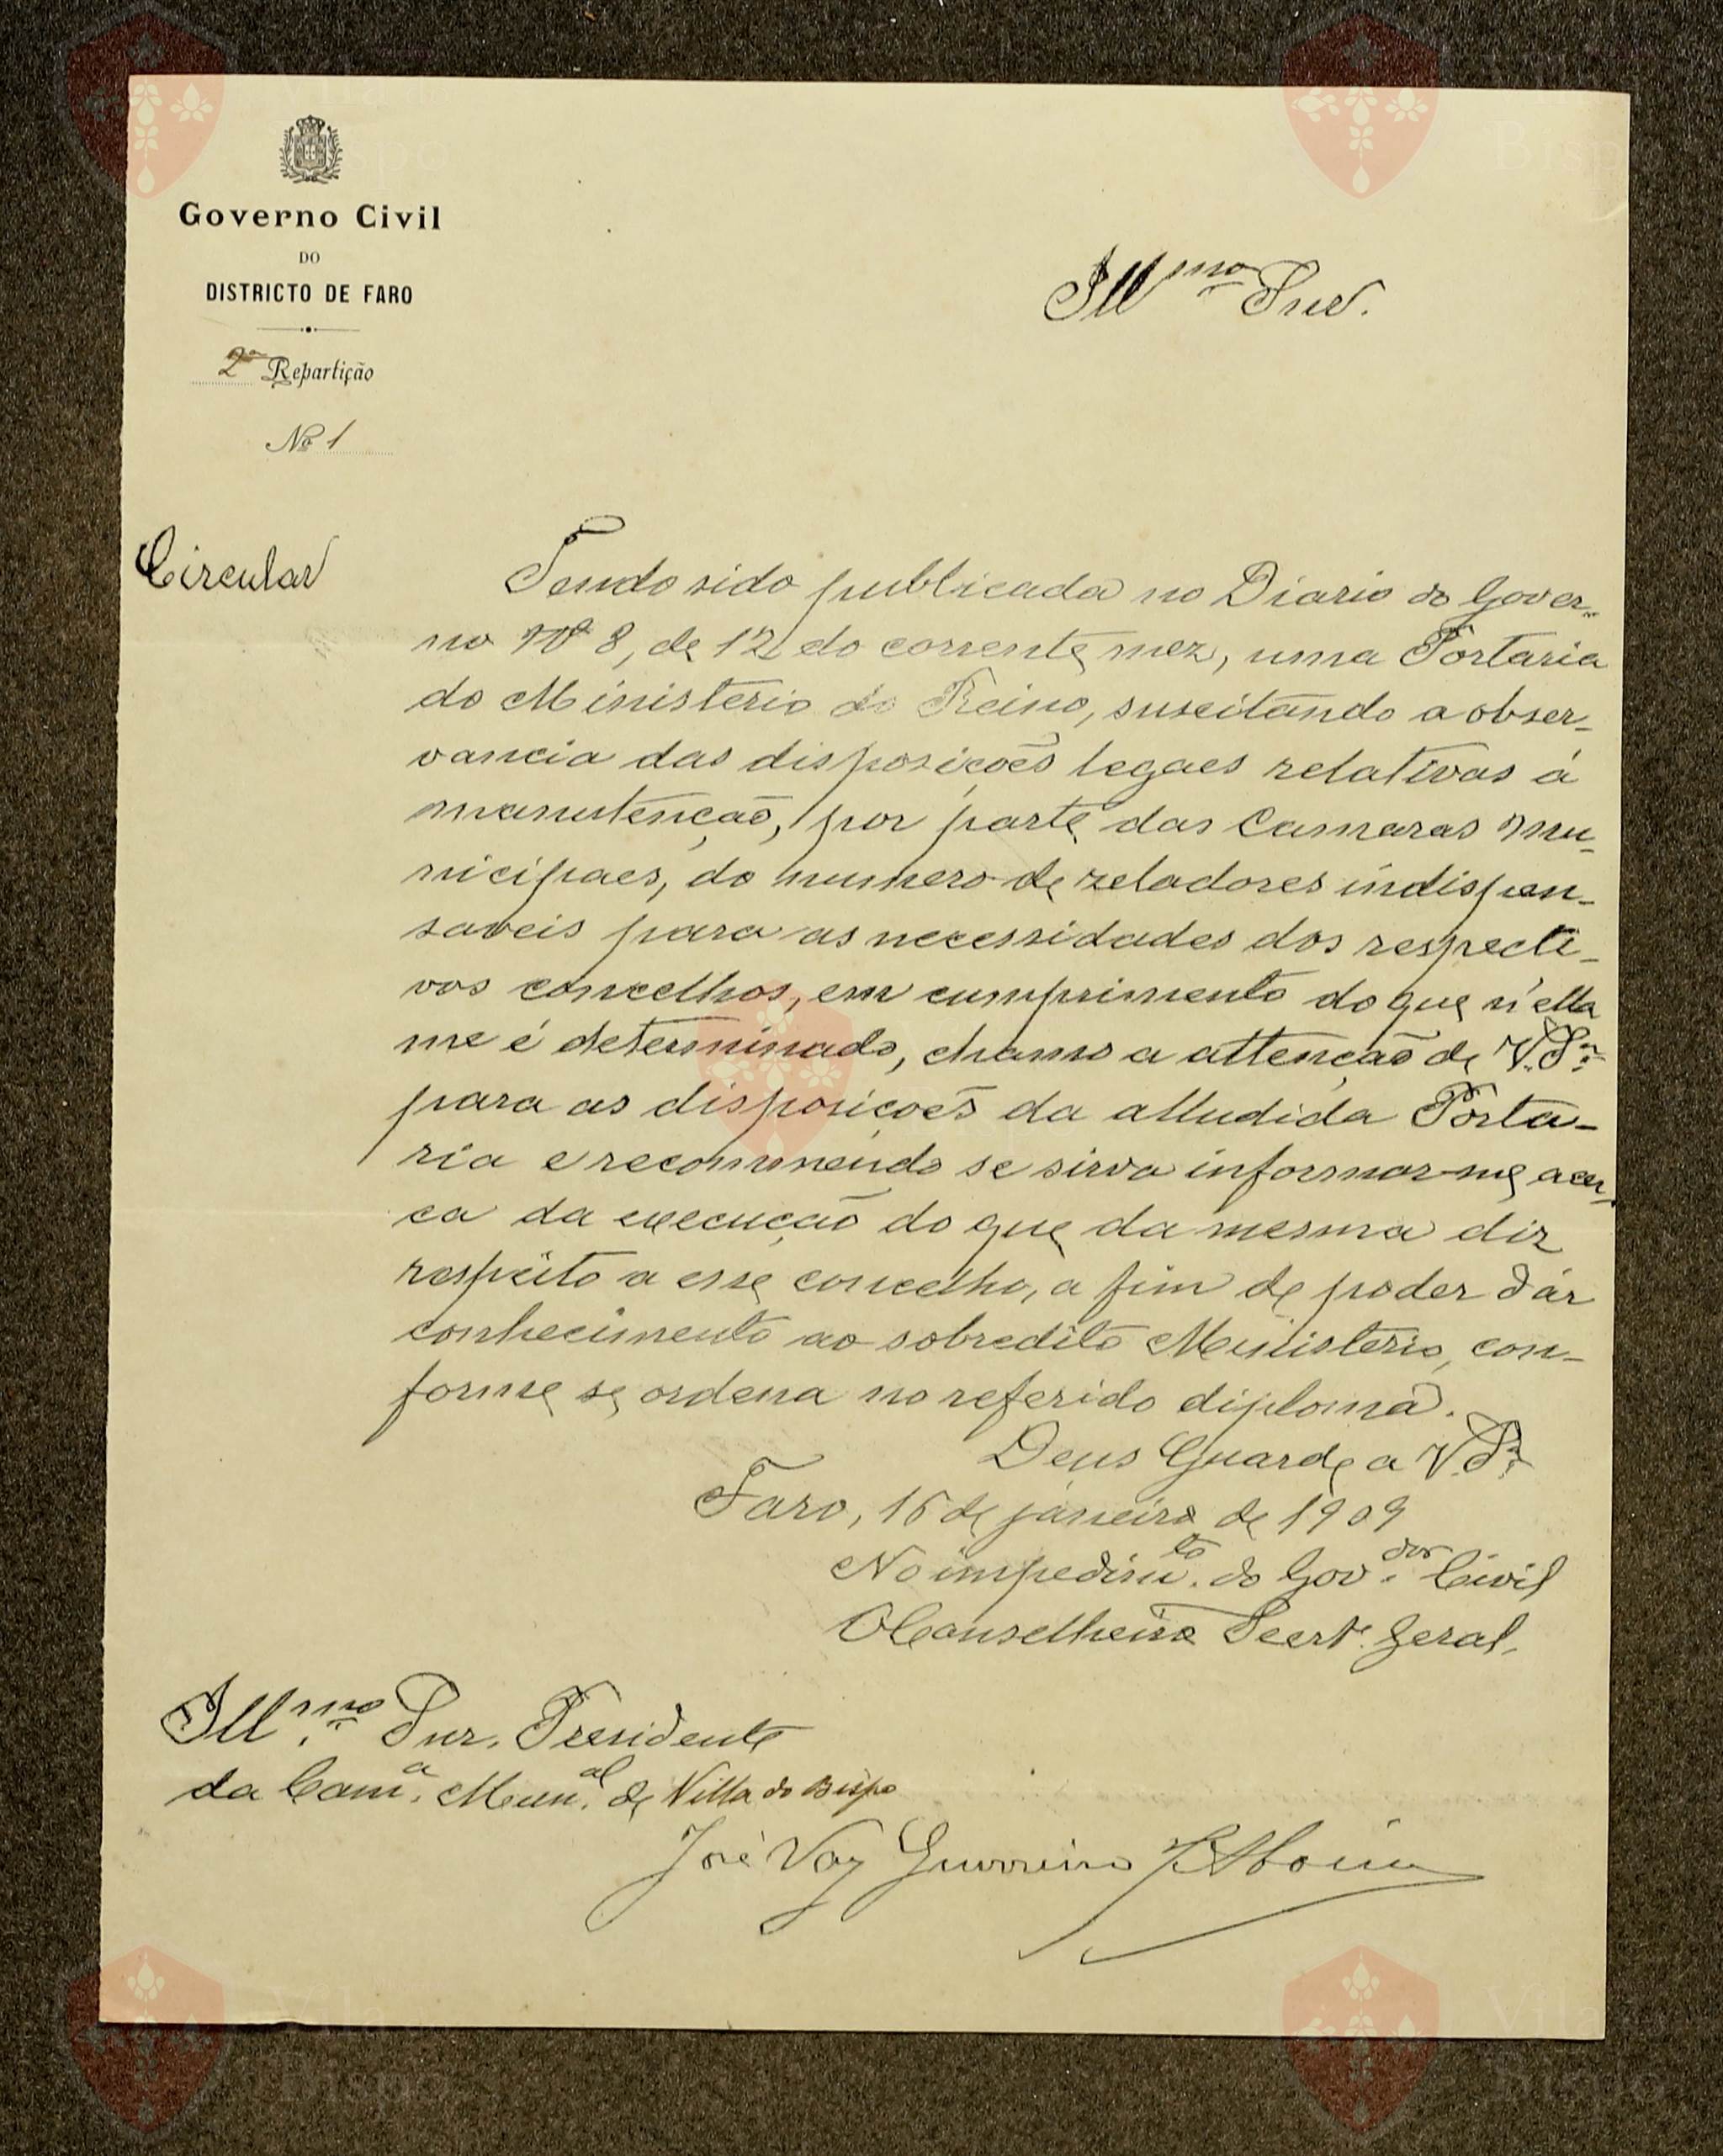 Governo Civil
DO
DISTRICTO DE FARO
2ª Repartição
Nº 1
Illmo Snr.
Circular
Tendo sido publicada no Diario do Gover-
no Nº 8, de 12 do corrente mez, uma Portaria
do Ministerio do Reino, suscitando a obser-
vancia das disposições legaes relativas á
manutenção, por parte das Camaras Mu-
nicipaes, do numero de zeladores indispen-
saveis para as necessidades dos respecti-
vos concelhos, em cumprimento do que n'ella
me é determinado, chamo a attenção de V. Sª.
para as disposições da alludida Porta-
ria e recommendo se sirva informar-me acer-
ca da execução do que da mesma diz
respeito a esse concelho, a fim de poder dár
conhecimento ao sobredito Ministerio, con-
forme se ordena no referido diploma.
Deus Guarde a V. Sª.
Faro, 16 de janeiro de 1909
No impedimto. do Govdor. Civil
O Conselheiro Secrt. Geral,
Illmo. Snr. Presidente
da Camª. Munal. de Villa do Bispo
José Vaz Guerreiro
Vila
Bispo